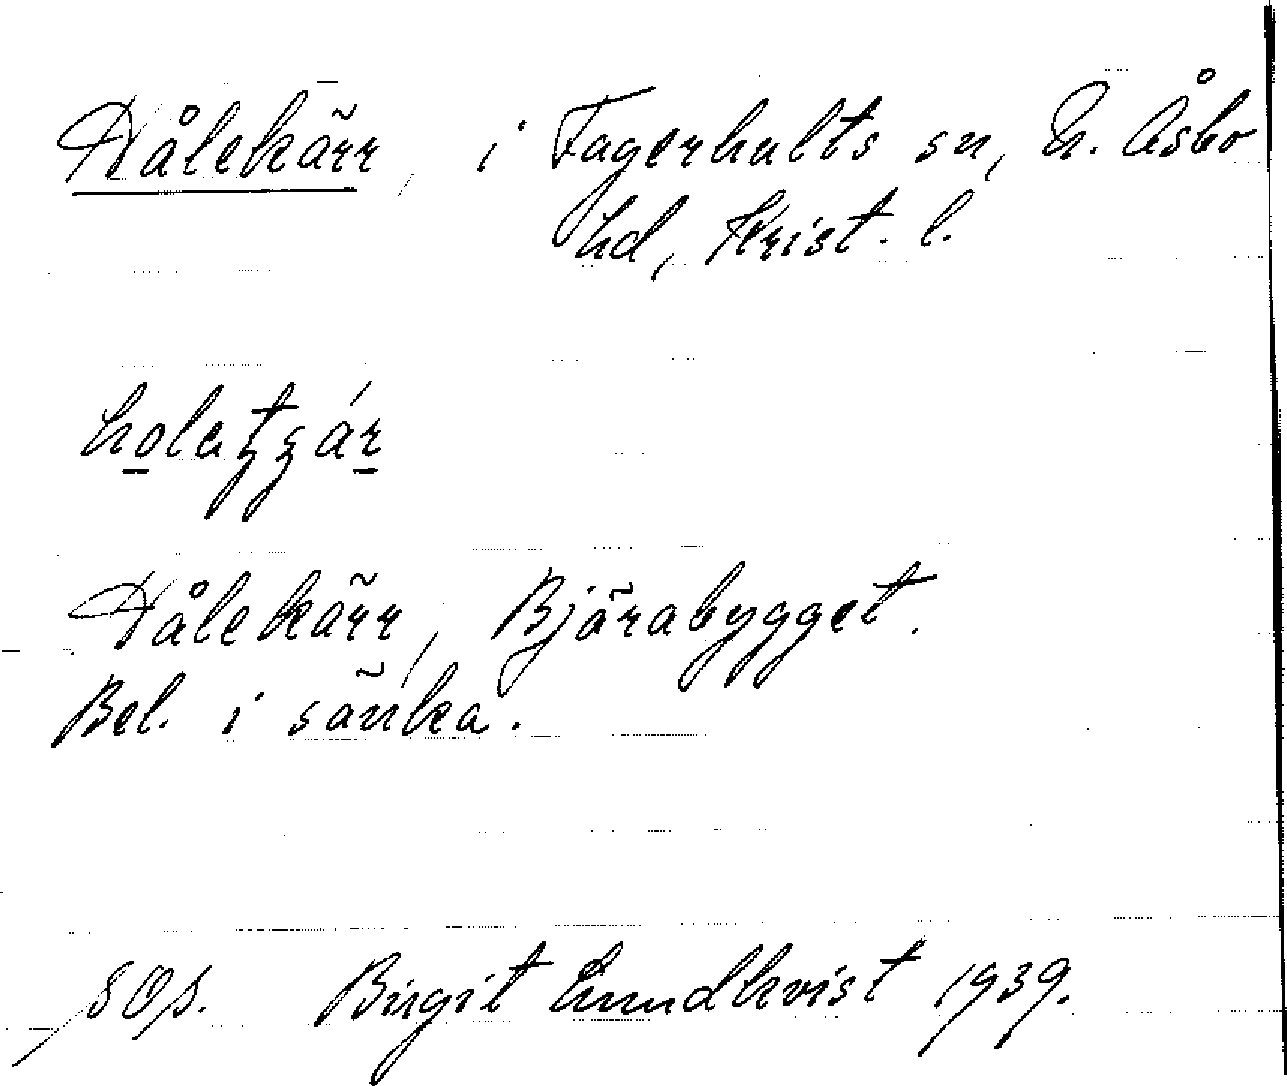 Hålekärr, i Fagerhults sn, N. Åsbo
hd, Krist. l.
Hålekärr, Björabygget.
Bel. i sänka.
Birgit Lundkvist 1939.